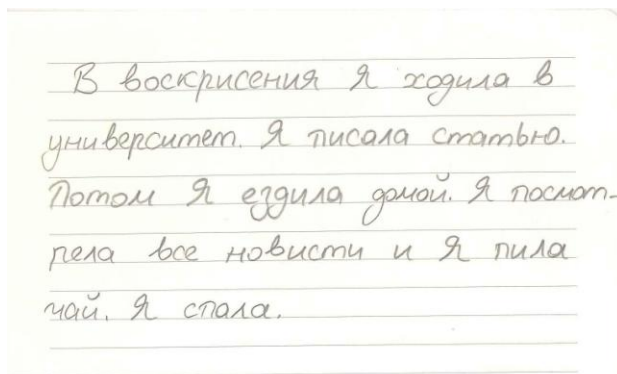 В воскрисения Я ходила в
университет. Я писала статью.
Потом Я ездила домой. Я посмот-
рела все новисти и Я пила
чай. Я спала.